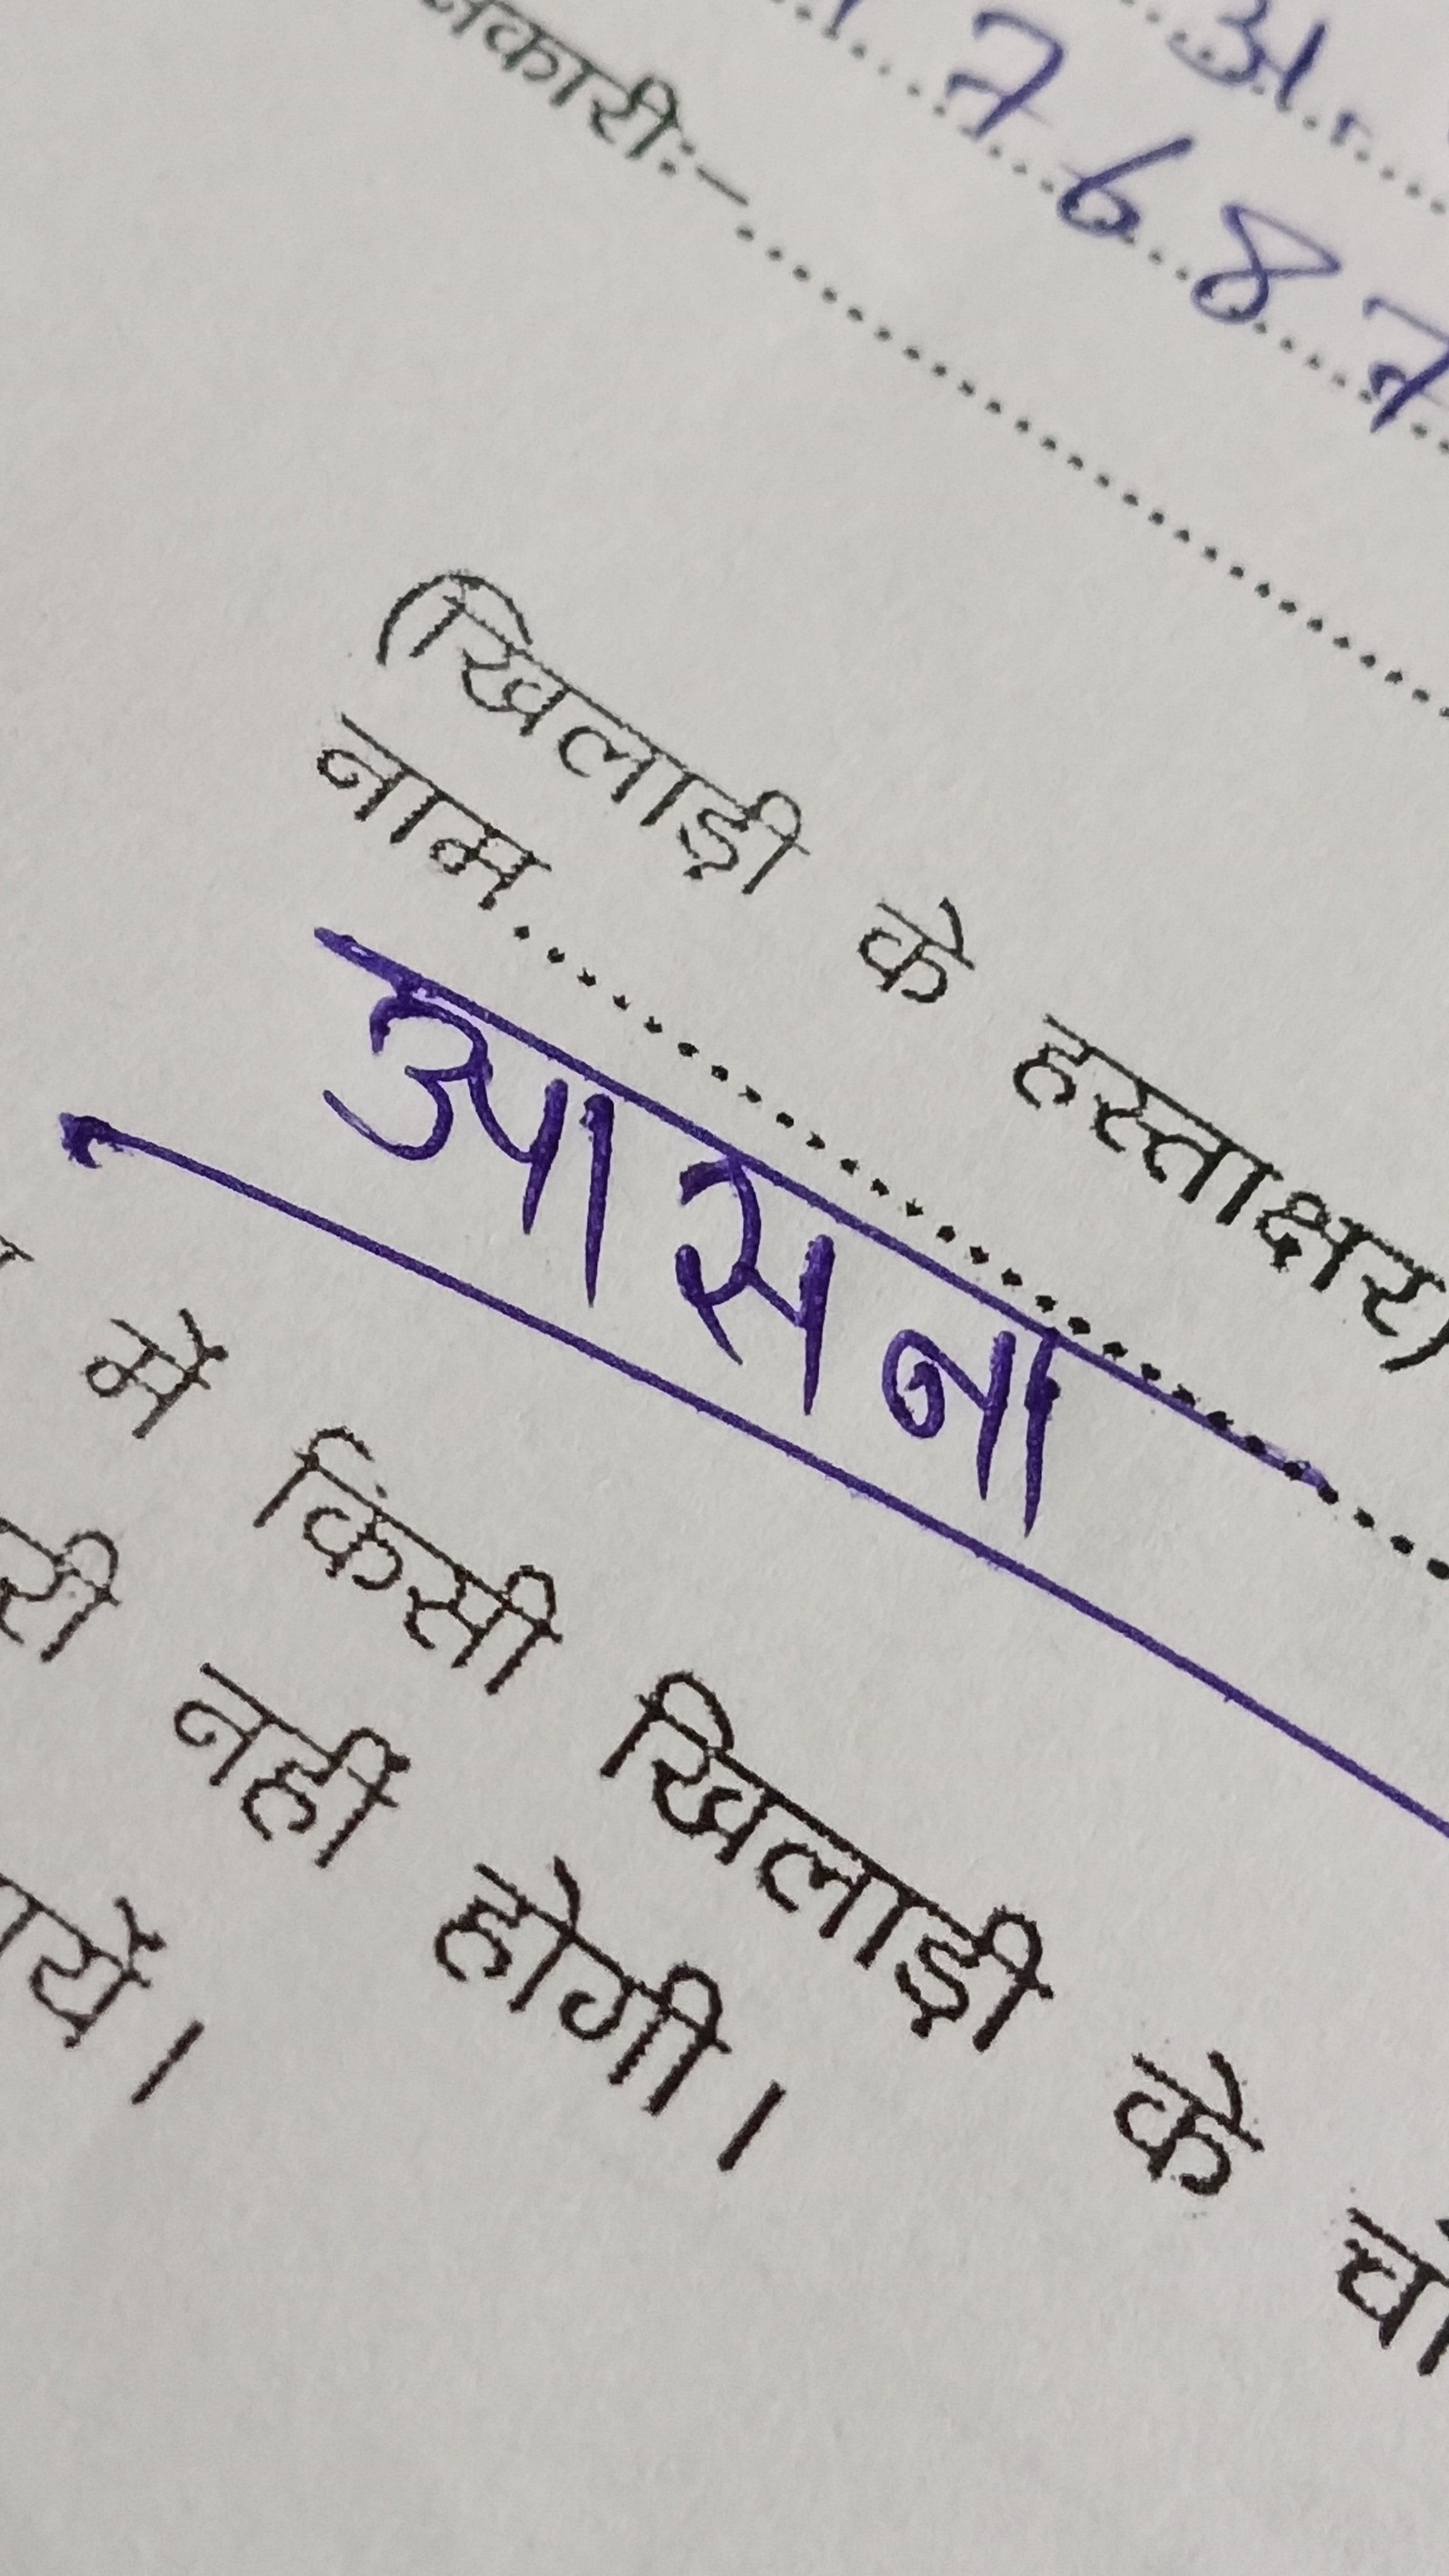 7687
(खिलाड़ी के हस्ताक्षर)
नाम..............................
आसना
में किसी खिलाड़ी के
नहीं होगी।